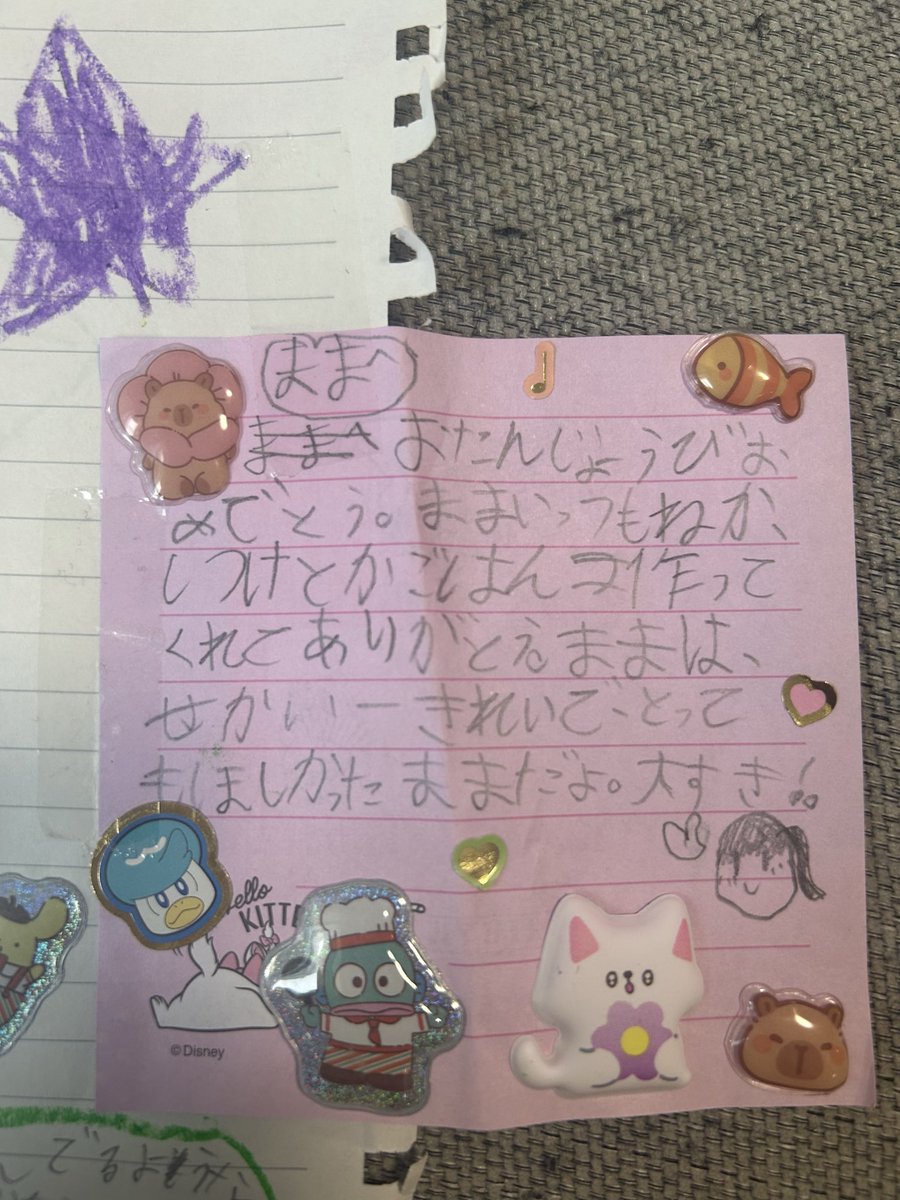 ままへ
ままへ おたんじょうびお、
めでとう。ままいっつもねか、
しつけとかごはん作って
くれてありがとう。ままは、
せかい一きれいで、とって
もほましかったままだよ。大すき!
ello
KITT
©Disney
でるよ